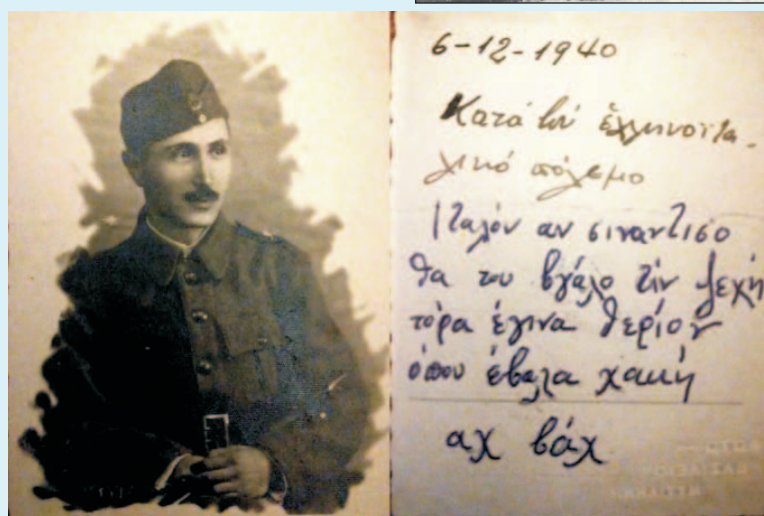 6-12-1940
Κατά τον ἑλληνοϊτα-
λικό πόλεμο
Ιταλόν αν σιναντισο
θα του βγάλο τίν ψεχή
τόρα έγινα θερίον
όπου έβαλα χακή
αχ βάχ